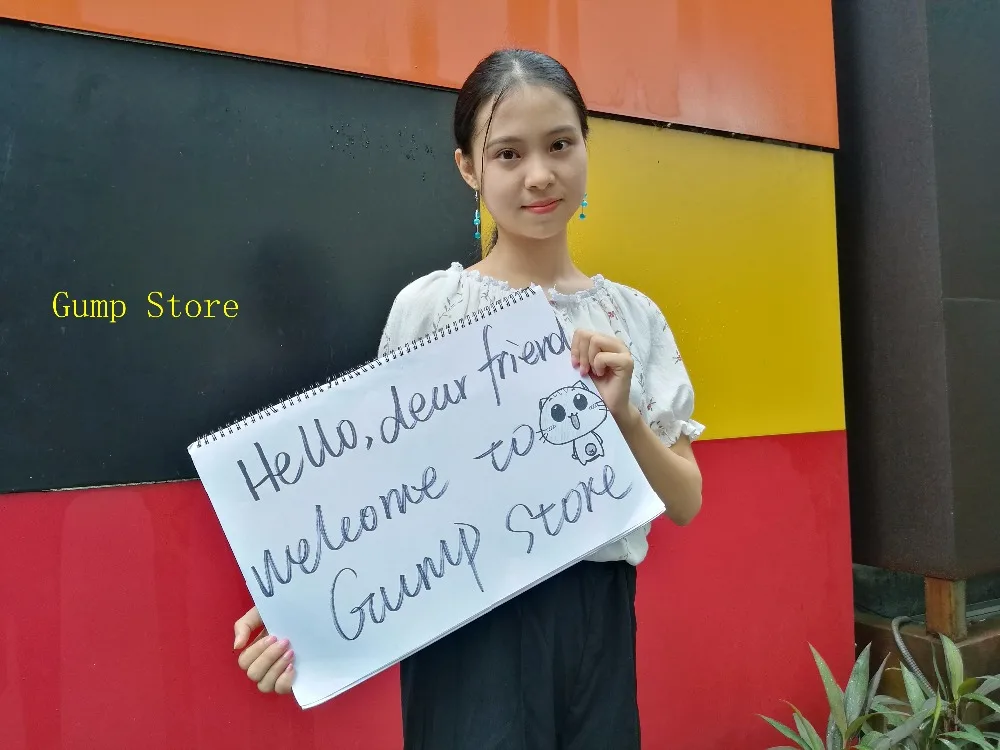 Gump Store
Hello, dear friend
welcome to
Gump Store